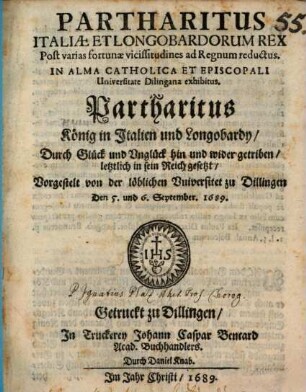 PARTHARITUS
55.
ITALIÆ ET LONGOBARDORUM REX
Post varias fortunæ vicissitudines ad Regnum reductus.
IN ALMA CATHOLICA ET EPISCOPALI
Universitate Dilingana exhibitus.
Partharitus
König in Italien und Longobardy/
Durch Glück und Unglück hin und wider getriben/
letztlich in sein Reich gesetzt/
Vorgestelt von der löblichen Vniversitet zu Dillingen
Den 5. und 6. September. 1689.
IHS
P. Ignatius
Getruckt zu Dillingen/
In Truckerey Johann Caspar Bencard
Acad. Buchhandlers.
Durch Daniel Knab.
Im Jahr Christi/ 1689.